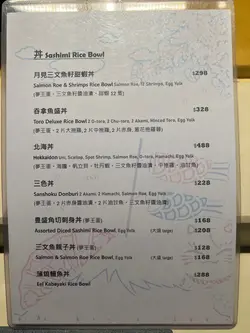 丼 Sashimi Rice Bowl
月見三文魚籽甜蝦丼 $298
Salmon Roe & Shrimps Rice Bowl Salmon Roe, 12 Shrimps, Egg Yolk
(夢王蛋、三文魚籽醬油漬、甜蝦 12 隻)
吞拿魚盛丼 $328
Toro Deluxe Rice Bowl 2 O-toro, 2 Chu-toro, 2 Akami, Minced Toro, Egg Yolk
(夢王蛋、2 片大拖羅、2 片中拖羅、2 片赤身、蔥花拖羅蓉)
北海丼 $488
Hokkaido Uni, Scallop, Spot Shrimp, Salmon Roe, O-toro, Hamachi, Egg Yolk
三色丼 $228
Sanshoku Donburi 2 Akami, 2 Hamachi, Salmon Roe, Egg Yolk
豊盛角切刺身丼 (夢王蛋) $168
Assorted Diced Sashimi Rice Bowl Egg Yolk (大 large) $208
三文魚親子丼 (夢王蛋) $168
Salmon & Salmon Roe Rice Bowl Egg Yolk (大 large) $208
蒲燒鰻魚丼 $388
Eel Kabayaki Rice Bowl